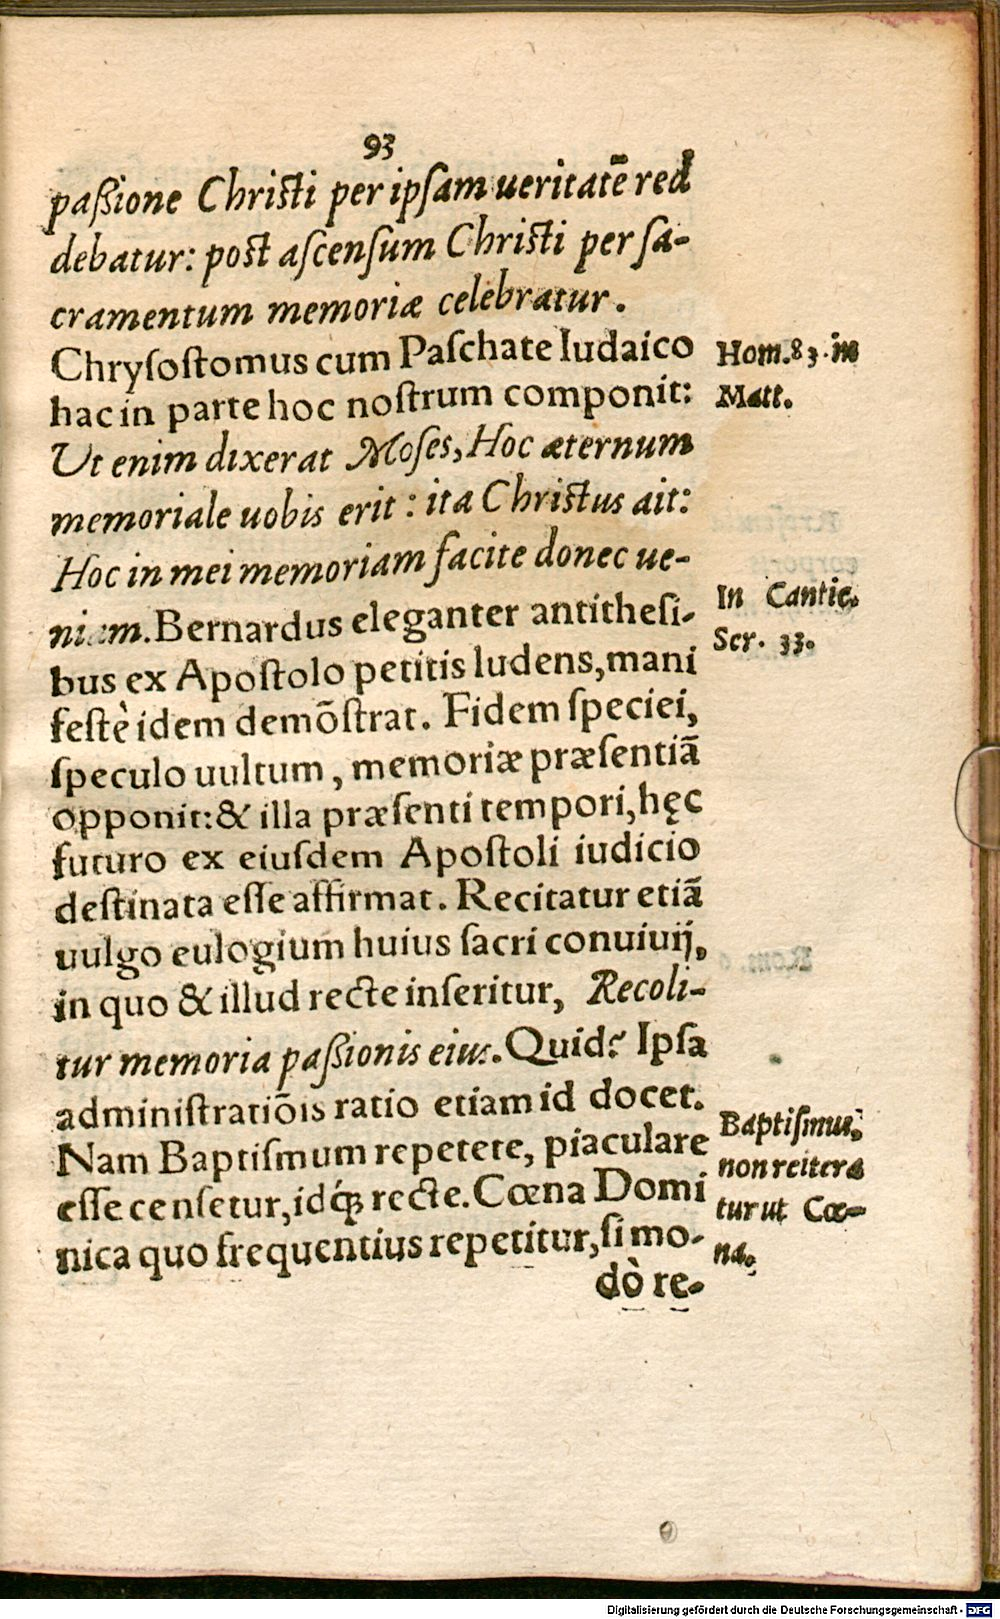 93
paſsione Christi per ipſam ueritatē red
debatur: post aſcenſum Christi per ſa-
cramentum memoriæ celebratur.
Chryſoſtomus cum Paſchate Iudaico
hac in parte hoc noſtrum componit:
Ut enim dixerat Moſes, Hoc æternum
memoriale uobis erit: ita Christus ait:
Hoc in mei memoriam facite donec ue-
niam. Bernardus eleganter antitheſi-
bus ex Apoſtolo petitis ludens, mani
feſtè idem demōſtrat. Fidem ſpeciei,
ſpeculo uultum, memoriæ præſentiā
opponit: & illa præſenti tempori, hęc
futuro ex eiuſdem Apoſtoli iudicio
deſtinata eſſe affirmat. Recitatur etiā
uulgo eulogium huius ſacri conuiuij,
in quo & illud recte inſeritur, Recoli-
tur memoria paſsionis eius. Quid? Ipſa
adminiſtratiōis ratio etiam id docet.
Nam Baptiſmum repetere, piaculare
eſſe cenſetur, idq́; recte. Cœna Domi
nica quo frequentius repetitur, ſi mo-
dò re-
Hom. 83. in
Matt.
In Cantic.
Ser. 33.
Baptiſmus
non reitera
tur ut Cœ-
na.
Digitalisierung gefördert durch die Deutsche Forschungsgemeinschaft - DFG